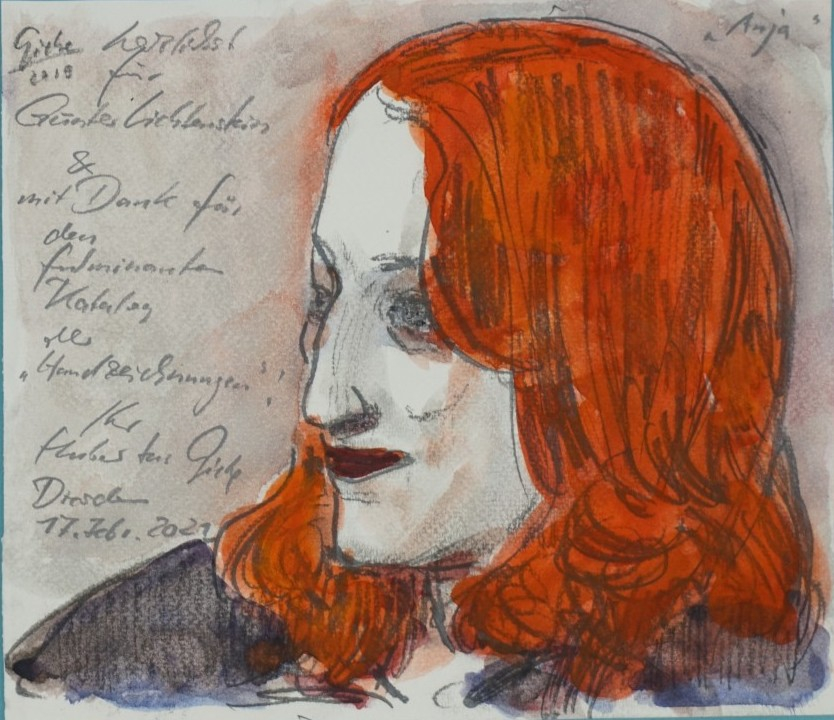 „Anja“
Giebe herzlichst
2019 für
Günter Lichtenstein
&
mit Dank für
den
fulminanten
Katalog
der
„Handzeichnungen“!
Ihr
Hubertus Giebe
Dresden
17. Febr. 2021